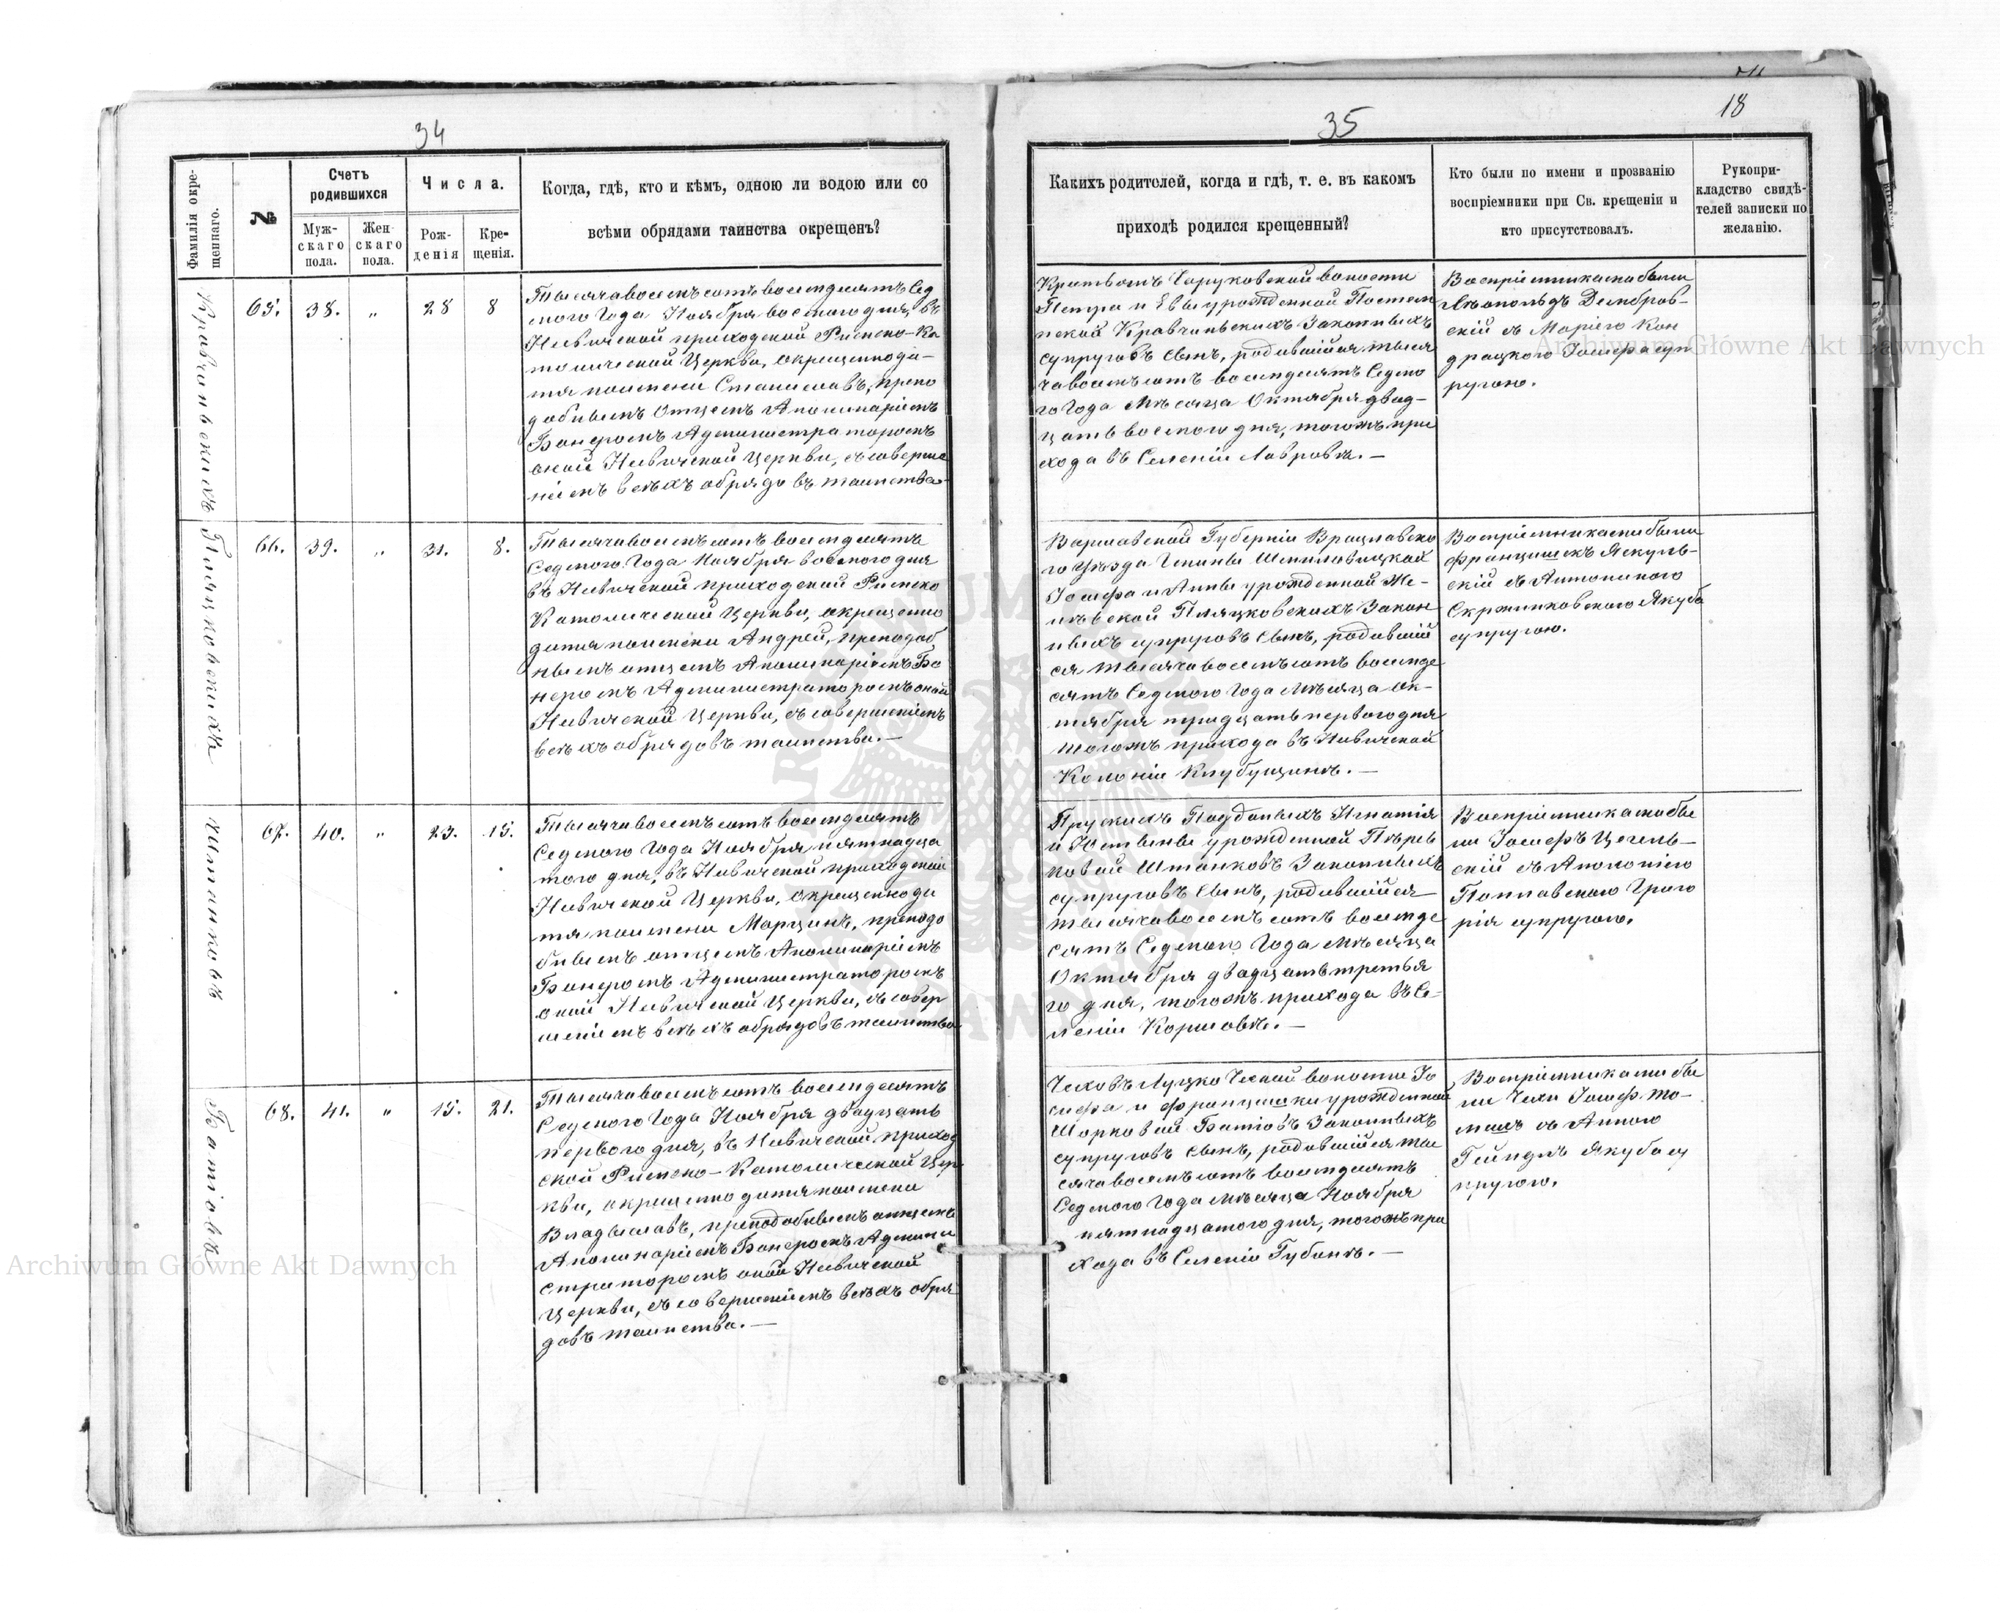 34
Фамилія окре-
щеннаго.
№
Счетъ
родившихся
Муж-
скаго
пола.
Жен-
скаго
пола.
Числа.
Рож-
денія
Кре-
щенія.
Когда, гдѣ, кто и кѣмъ, одною ли водою или со
всѣми обрядами таинства окрещенъ?
Кравчаньскихъ
65.
38.
"
28
8
Тысяча восемьсотъ восемдесятъ Сед
мого Года Ноября восмого дня, въ
Невичской приходской Римско-Ка
толической Церкви, окрещено ди-
тя по имени Станиславъ, препо
добнымъ Отцемъ Аполинаріемъ
Администраторомъ
оной Невичской Церкви, съ соверше
ніемъ всѣхъ обрядовъ таинства.
Пляцковскихъ
66.
39.
"
31.
8.
Тысяча восемьсотъ восемдесятъ
Седмого Года Ноября восмого дня
въ Невичской приходской Римско
Католической Церкви, окрещено
дитя по имени Андрей, преподоб
нымъ отцемъ Аполинаріемъ Бо
неромъ Администраторомъ оной
Невичской Церкви, съ совершеніемъ
всѣхъ обрядовъ таинства. —
Штанковъ
67.
40.
"
23.
15.
Тысяча восемьсотъ восемдесятъ
Седмого Года Ноября пятнадца
того дня, въ Невичской приходской
Невичской Церкви, окрещено ди
тя по имени Марцинъ, преподо
бнымъ отцемъ Аполинаріемъ
Администраторомъ
оной Невичской Церкви, съ совер
шеніемъ всѣхъ обрядовъ таинства
Батіовъ
68.
41.
"
15.
21.
Тысяча восемьсотъ восемдесятъ
Седмого Года Ноября двадцать
первого дня, въ Невичской приход
ской Римско-Католической Цер
кви, окрещено дитя по имени
Владыславъ, преподобнымъ отцемъ
Аполинаріемъ Админи
страторомъ оной Невичской
Церкви, съ совершеніемъ всѣхъ обря
довъ таинства. —
35
18
Какихъ родителей, когда и гдѣ, т. е. въ какомъ
приходѣ родился крещенный?
Кто были по имени и прозванію
воспріемники при Св. крещеніи и
кто присутствовалъ.
Рукопри-
кладство свидѣ-
телей записки по
желанію.
Чаруковской волости
Петра и Евы урожденной
Кравчаньскихъ Законныхъ
супруговъ Сынъ, родившійся тыся
ча восемьсотъ восемдесятъ Седмо
го Года Мѣсяца Октября двад-
цать восмого дня, тогожъ при
хода въ Селеніи Лавровѣ. —
Воспріемниками были
Леопольдъ Домбров-
скій съ Маріею Кон
драцкою Іосифа суп
ругою.
Варшавской Губерніи
го Уѣзда Гмины
Іосифа и Анны урожденной
Пляцковскихъ Закон-
ныхъ супруговъ Сынъ, родившій
ся тысяча восемьсотъ восемде
сятъ Седмого Года Мѣсяца Ок-
тября тридцать первого дня
тогожъ прихода въ Невичской
Колоніи
Воспріемниками были
Францишекъ Якуль-
скій съ Антониною
Скржинковскою Якуба
супругою.
Прускихъ Подданыхъ Игнатія
и Юстыны урожденной
Штанковъ Законныхъ
супруговъ Сынъ, родившійся
тысяча восемьсотъ восемде
сятъ Седмого Года Мѣсяца
Октября двадцать третья
го дня, тогожъ прихода въ Се-
леніи Коршовѣ. —
Воспріемниками бы
ли Іосифъ Цегель-
скій съ Аполоніею
Поплавскою Григо
рія супругою.
Чеховъ Луцко Ческой волости Іо
сифа и Францишки урожденной
Батіовъ Законныхъ
супруговъ Сынъ, родившійся тыс
сяча восемьсотъ восемдесятъ
Седмого Года Мѣсяца Ноября
пятнадцатого дня, тогожъ при
хода въ Селеніи Губинѣ. —
Воспріемниками бы
ли Чехи Іосифъ То-
машъ съ Анною
Гейндль Якуба су
пругою.
Archiwum Główne Akt Dawnych
Archiwum Główne Akt Dawnych